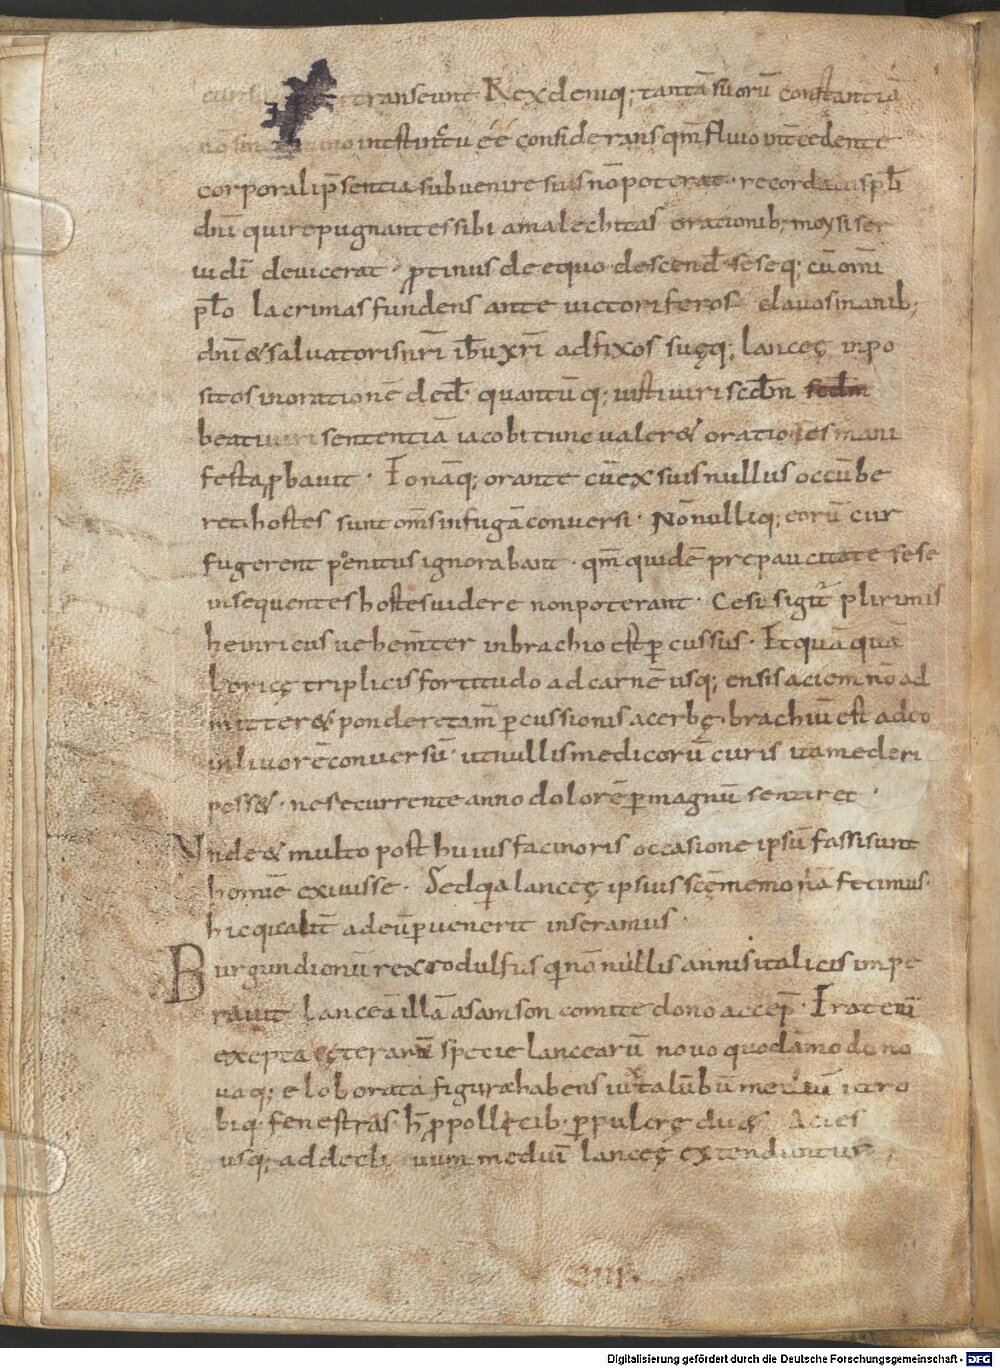 transeunt Rex deniq; tantā suorū constantiā
instinctu eē considerans qm̄ fluvio intcedente
corporali p̄sentia subvenire suis nō poterat · recordatus pl̄i
dn̄i qui repugnantes sibi amalechitas orationib; moysi ser
ui dī devicerat · ptinus de equo descend̄ sese q; cū om̄i
pl̄o lacrimas fundens ante victoriferos clavos manib;
dn̄i & salvatoris nr̄i ih̄u xp̄i adfixos suęq; lanceę inpo
sitos in oratione ded̄ · quantūq; iusti viri sedm̄
beati viri sententiā iacobi tunc valer& oratio res mani
festa pbavit · Io nāq; orante cū ex suis nullus occūbe
ret hostes sunt om̄s in fugā conversi · Nō nulliq; eorū cur
fugerent penitus ignorabant · qm̄ quidē pre paucitate sese
insequentes hostes videre non poterant · Cesis igit̄ plurimis
heinricus vehem̄ter in brachio est pcussus · Et quā quā
loricę triplicis fortitudo ad carnē usq; ensis aciem nō ad
mitter& pondere tam̄ pcussionis acerbę · brachiū est adeo
in livorē conversū · ut nullis medicorū curis ita mederi
poss& · ne se currente anno dolorē pmagnū sentiret ·
Unde & multo post huius facinoris occasione ipsū fassi sunt
hominē exivisse · Sed qia lanceę ipsius scē memoriā fecimus ·
hic qualit̄ ad eū pvenerit inseramus ·
Burgundionū rex rodulfus qi nō nullis annis italicis impe
ravit lanceā illā a samson comite dono accep̄ · Erat enī
excepta cęterarū specie lancearū novo quodāmodo no
vaq; eloborata figura habens iuxta lūbū mediū utro
biq · fenestras · h̄ p pollęcib · ppulcrę duę Acies
usq; ad declivum mediū lanceę extenduntur
Digitalisierung gefördert durch die Deutsche Forschungsgemeinschaft - DFG